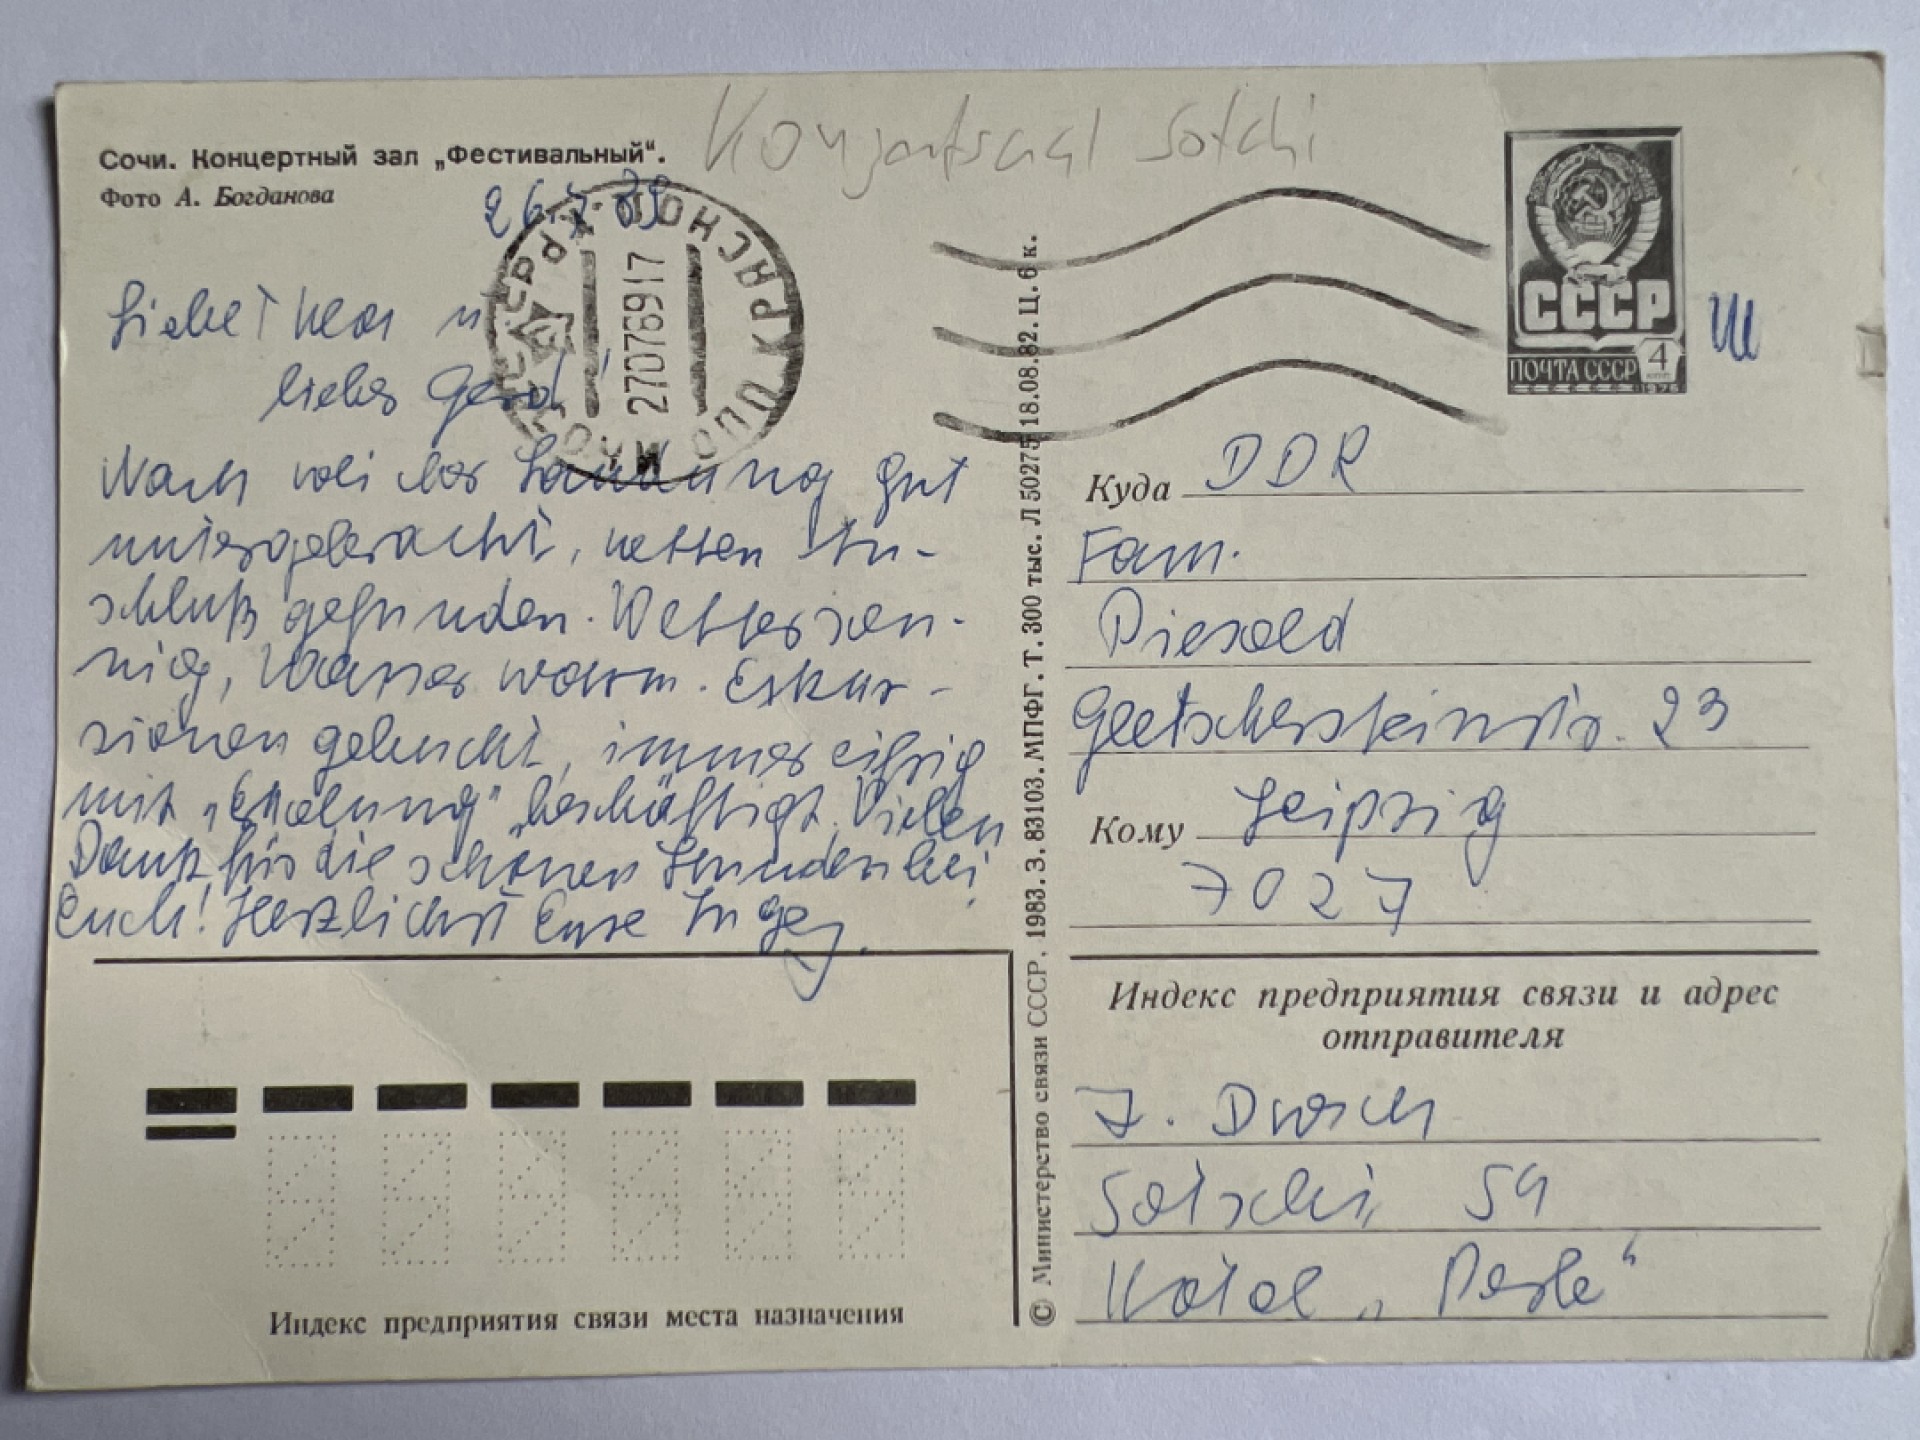 Konzertsaal Sotchi
Сочи. Концертный зал „Фестивальный“.
Фото А. Богданова
26.7.89
270789 17
СССР
ПОЧТА СССР 4
1976
Liebe Thea u.
lieber Gerd!
Nach weicher Landung gut
untergebracht, netten An-
schluß gefunden. Wetter son-
nig, Wasser warm. Exkur-
sionen gebucht, immer eifrig
mit „Erholung“ beschäftigt. Vielen
Dank für die schönen Stunden bei
Euch! Herzlichst Eure Inge
© Министерство связи СССР. 1983. З. 83103. МПФГ. Т. 300 тыс. Л 50275 18.08.82. Ц. 6 к.
Куда DDR
Fam.
Gletschersteinstr. 23
Кому Leipzig
7027
Индекс предприятия связи и адрес
отправителя
Sotschi, 54
Hotel „Perle“
Индекс предприятия связи места назначения